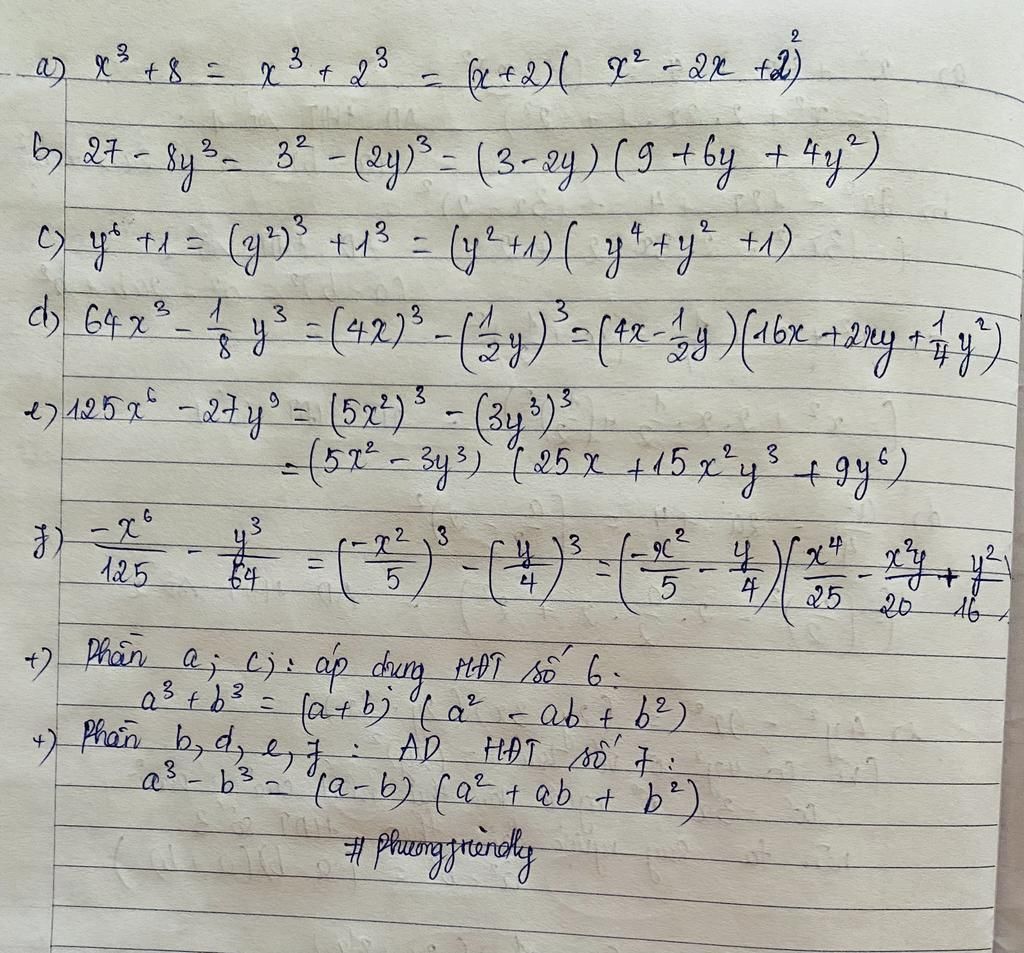 a) x³ + 8 = x³ + 2³ = (x+2)( x² - 2x + 2²)
b) 27 - 8y³ = 3² - (2y)³ = (3 - 2y) (9 + 6y + 4y²)
c) y⁶ + 1 = (y²)³ + 1³ = (y² + 1) ( y⁴ + y² + 1)
d) 64x³ - 1/8 y³ = (4x)³ - (1/2 y)³ = (4x - 1/2 y)(16x + 2xy + 1/4 y²)
e) 125x⁶ - 27y⁹ = (5x²)³ - (3y³)³
= (5x² - 3y³) (25x + 15x²y³ + 9y⁶)
f) -x⁶/125 - y³/64 = (-x²/5)³ - (y/4)³ = (-x²/5 - y/4)(x⁴/25 - x²y/20 + y²/16)
+) Phần a; c; : áp dụng HĐT số 6 :
a³ + b³ = (a + b) (a² - ab + b²)
+) Phần b, d, e, f : AD HĐT số 7 :
a³ - b³ = (a - b) (a² + ab + b²)
# phuongfriendly